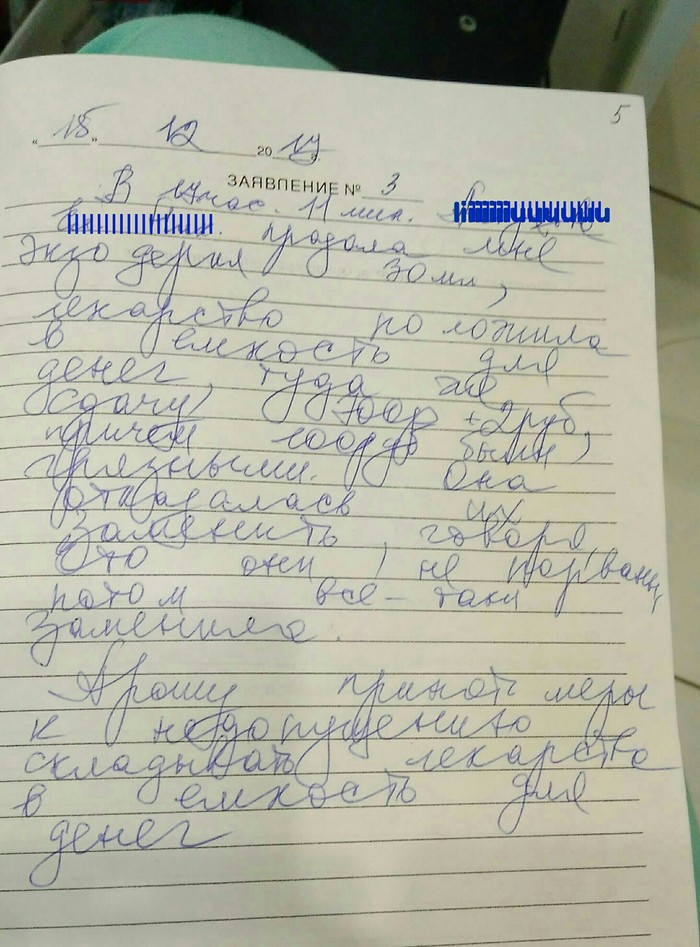 5
„18“ 12 2017
ЗАЯВЛЕНИЕ № 3
В 17 час. 11 мин.
продала мне
Экзодерил 30 мл,
лекарство положила
в емкость для
денег, туда же
сдачу 700р + 2 руб,
причем 100 руб были
грязными. Она
отказалась их
заменить, говоря,
что они не порваны,
потом все-таки
заменила.
Прошу принять меры
к недопущению
складывать лекарство
в емкость для
денег